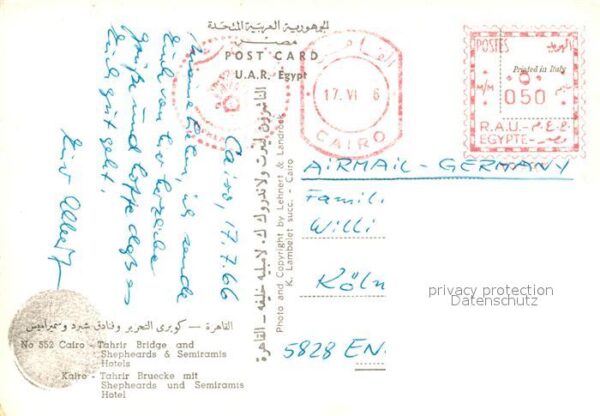 الجمهورية العربية المتحدة
مصر
POST CARD
U.A.R. Egypt
CAIRO
17. VI 6
POSTES
البريد
Printed in Italy
M/M
050
R.A.U. - ج.ع.م
EGYPTE - مصر
Cairo, 17.7.66
ich sende
Euch von hier herzliche
Grüße und hoffe daß es
Euch gut geht.
Euer Albert
AIRMAIL - GERMANY
Famil.
Willi
Köln
5828 EN.
privacy protection
Datenschutz
الناشرون لينرت ولاندروك ك. لامبليه خليفه - القاهرة
Photo and Copyright by Lehnert & Landrock
K. Lambelet succ. - Cairo
القاهرة - كوبرى التحرير وفنادق شبرد وسميراميس
No 852 Cairo - Tahrir Bridge and
Shepheards & Semiramis
Hotels
Kairo - Tahrir Bruecke mit
Shepheards und Semiramis
Hotel